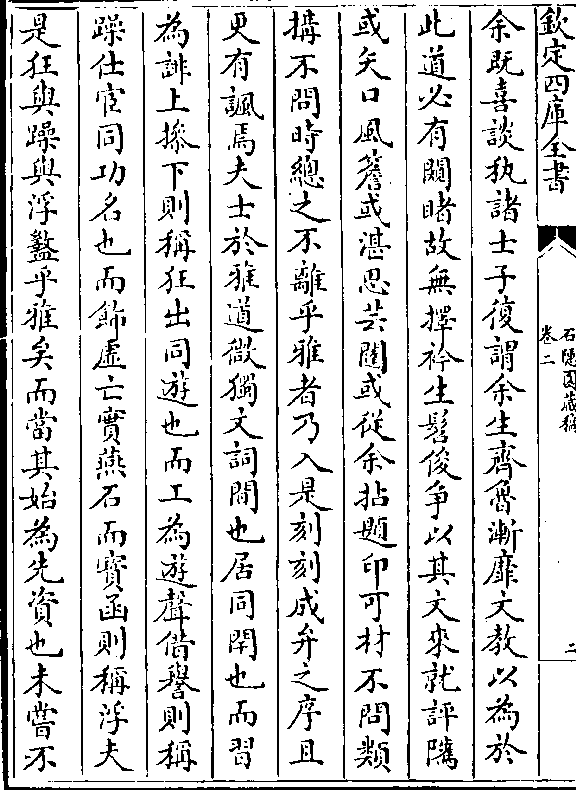 欽定四庫全書
石隱園藏稿
卷二
二
余既喜談執諸士子復謂余生齊魯漸靡文教以為於
此道必有闚睹故無擇衿生髦俊争以其文來就評隲
或矢口風簷或湛思芸閣或從余拈題印可材不問類
搆不問時總之不離乎雅者乃入是刻刻成弁之序且
更有諷焉夫士於雅道微獨文詞間也居同閈也而習
為誹上摻下則稱狂出同遊也而工為遊聲借譽則稱
躁仕宦同功名也而飾虛亡實燕石而寳函則稱浮夫
是狂與躁與浮盭乎雅矣而當其始為先資也未嘗不